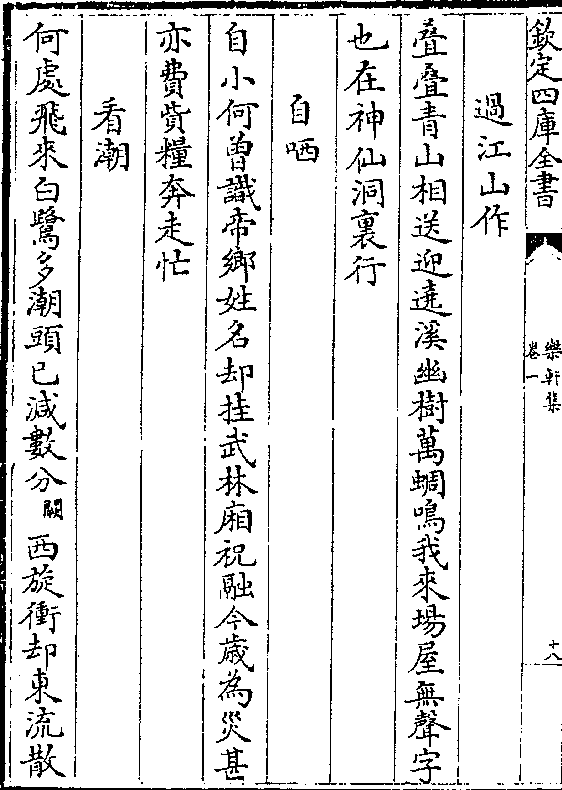 欽定四庫全書
樂軒集
卷一
十八
過江山作
叠叠青山相送迎遶溪幽樹萬蜩鳴我來場屋無聲字
也在神仙洞裏行
自哂
自小何曾識帝鄉姓名却挂武林廂祝融今歲為災甚
亦費貲糧奔走忙
看潮
何處飛來白鷺多潮頭已減數分闕西旋衝却東流散